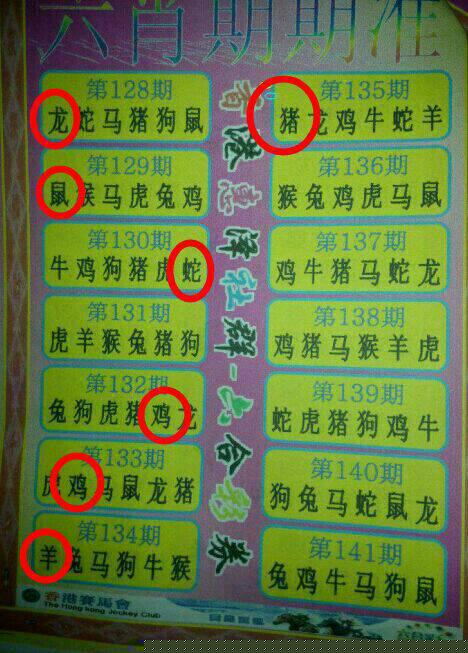 六肖期期准
第128期
龙蛇马猪狗鼠
第129期
鼠猴马虎兔鸡
第130期
牛鸡狗猪虎蛇
第131期
虎羊猴兔猪狗
第132期
兔狗虎猪鸡龙
第133期
虎鸡马鼠龙猪
第134期
羊兔马狗牛猴
香港惠泽社群-六合彩券
第135期
猪龙鸡牛蛇羊
第136期
猴兔鸡虎马鼠
第137期
鸡牛猪马蛇龙
第138期
鸡猪马猴羊虎
第139期
蛇虎猪狗鸡牛
第140期
狗兔马蛇鼠龙
第141期
兔鸡牛马狗鼠
香港賽馬會
The Hong kong Jockey Club